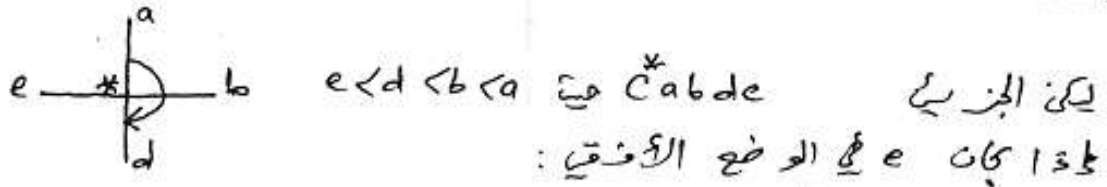 ليكن الجزيء C*abde حيث e<d<b<a
إذا كان e في الوضع الأفقي :
a
e * b
d